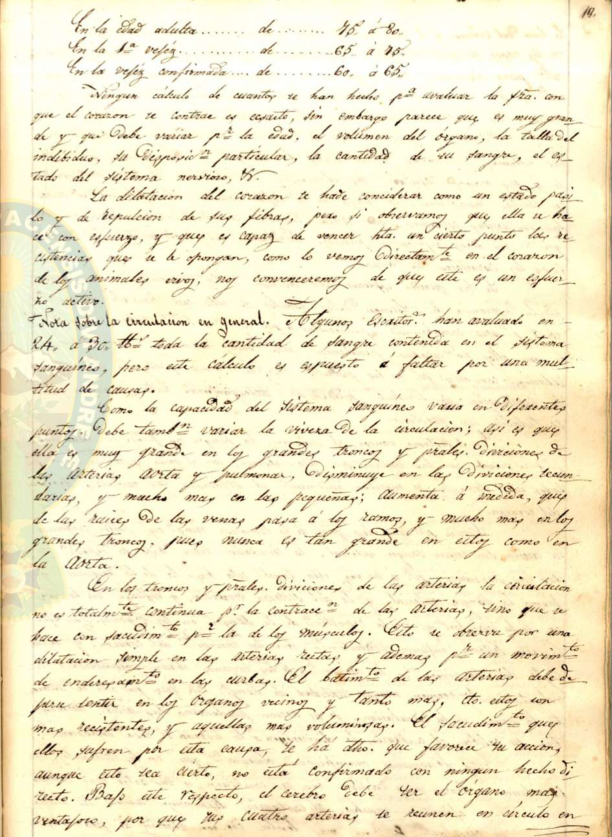 19.
En la edad adulta........ de ........ 75. á 80.
En la 1ª vejéz........... de........ 65. á 75.
En la vejéz confirmada.... de........ 60. á 65.
Ningun cálculo de cuantos se han hecho pª avaluar la fza. con
que el corazon se contrae es exsacto, sin embargo parece que es muy gran
de y que debe variar pr la edad, el volúmen del organo, la talla del
indibiduo, su disposicn particular, la cantidad de su sangre, el es-
tado del sistema nervioso, &.
La dilatacion del corazon se hade conciderar como un estado pasi
bo y de repulcion de sus fibras, pero si observamos que ella se ha
ce con esfuerzo, y que es capaz de vencer hta un cierto punto las re
cistencias que se le opongan, como lo vemos directamte en el corazon
de los animales vivos, nos convenceremos de que este es un esfuer
zo activo.
Nota sobre la circulacion en general. Algunos Escritors han avaluado en
24. á 30. lbs toda la cantidad de sangre contenida en el sistema
sanguineo, pero este calculo es espuesto á faltar por una mul-
titud de causas.
Como la capacidad del sistema sanguíneo varia en diferentes
puntos, debe tambn variar la viveza de la circulacion; asi es que
ella es muy grande en los grandes troncos y prales. diviciones de
las arterias Aorta y pulmonar, disminuye en las diviciones secun-
darias, y mucho mas en las pequeñas; aumenta á medida, que
de las raices de las venas pasa á los ramos, y mucho mas en los
grandes troncos. pues nunca es tan grande en estos como en
la Aorta.
En los troncos y prales. diviciones de las arterias la circulacion
no es totalmte continua pr la contraccn de las arterias, sino que se
hace con sacudimto pr la de los músculos. Esto se observa por una
dilatacion simple en las arterias rectas y ademas pr un movimto
de enderesamto en las curbas. El batimto de las arterias debe de
jarse sentir en los organos vecinos y tanto mas, cto. estos son
mas recistentes, y aquellas mas voluminosas. El sacudimto que
ellos sufren por esta causa, se ha dho. que favorece su accion,
aunque esto sea cierto, no está confirmado con ningun hecho di
recto. Bajo este respecto, el cerebro debe ser el organo mas
ventajoso, por que sus cuatro arterias se reunen en círculo en